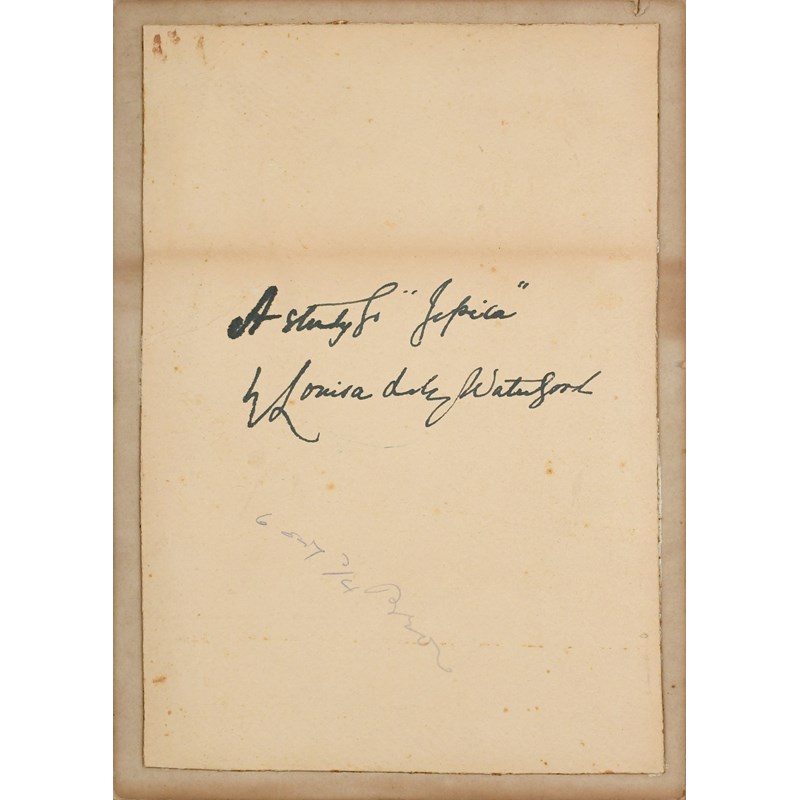 A study for "Jessica"
by Louisa Lady Waterford